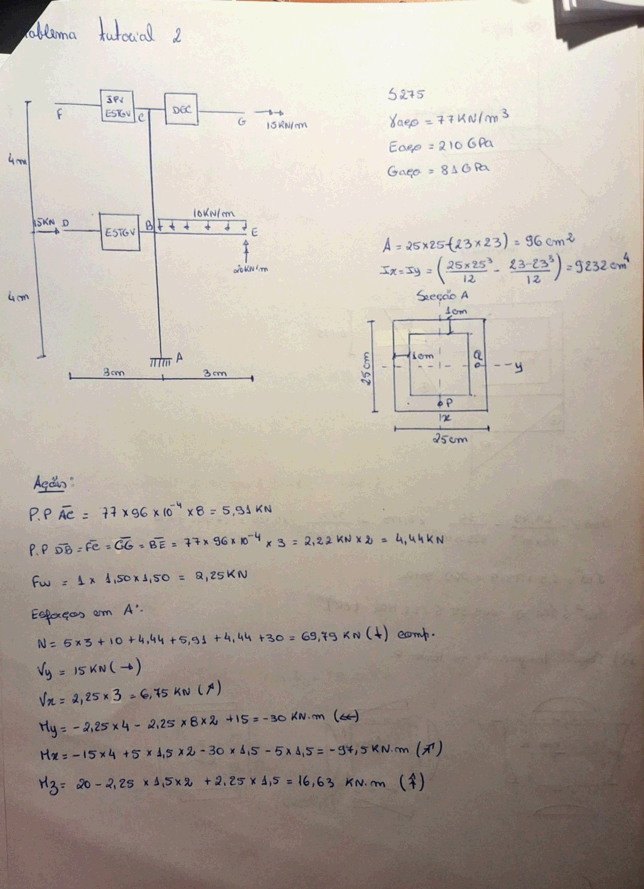 Problema Tutorial 2
IPV
ESTGV
DGC
F
C
G
15KN/m
4m
15KN D
ESTGV
B
10KN/m
E
20KN/m
4m
A
3cm
3cm
S275
γaço = 77KN/m³
Eaço = 210 GPa
Gaço = 81 GPa
A = 25×25-(23×23) = 96 cm²
Ix=Iy = (25×25³/12 - 23-23³/12) = 9232 cm⁴
Secção A
1cm
1cm
25cm
Q
y
P
x
25cm
Ações:
P.P AC = 77×96×10⁻⁴×8 = 5,91 KN
P.P DB = FC = CG = BE = 77×96×10⁻⁴×3 = 2,22 KN×2 = 4,44KN
Fw = 1 × 1,50×1,50 = 2,25KN
Esforços em A:
N = 5×3+10+4,44+5,91+4,44+30 = 69,79 KN (↓) comp.
Vy = 15KN (→)
Vx = 2,25×3 = 6,75 KN (↗)
My = -2,25×4 - 2,25×8×2 +15 = -30 KN.m
Mx = -15×4 +5×1,5×2-30×1,5-5×1,5 = -97,5KN.m
Mz = 20-2,25 ×1,5×2 +2,25×1,5 = 16,63 KN.m